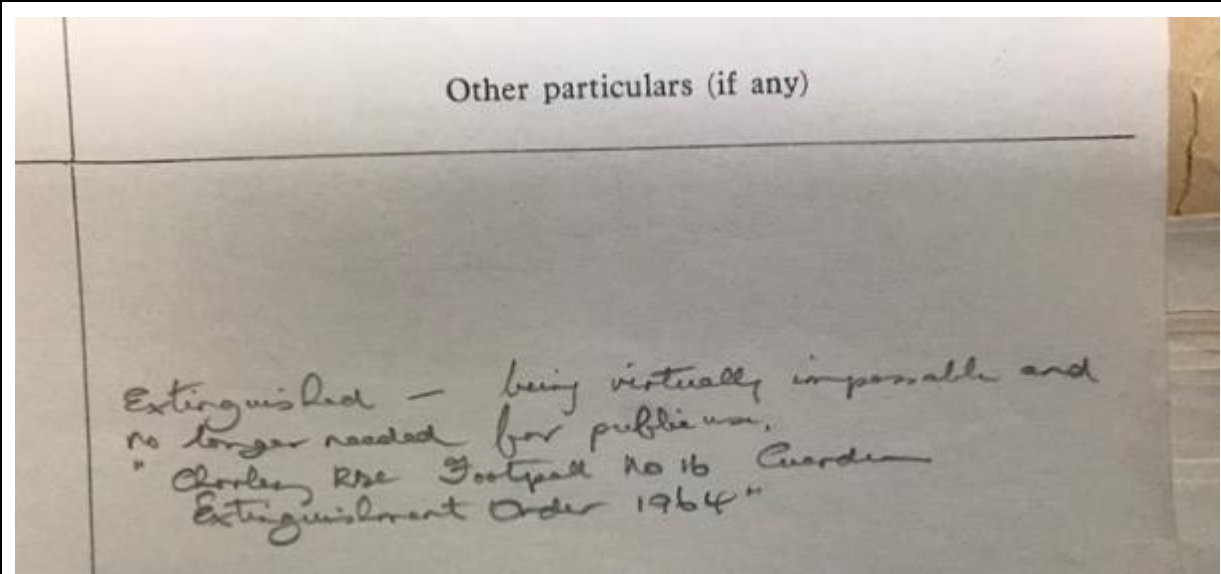 Other particulars (if any)
Extinguished — being virtually impassable and
no longer needed for public use.
" Chorley RDC Footpath No 16 Cuerden
Extinguishment Order 1964 "